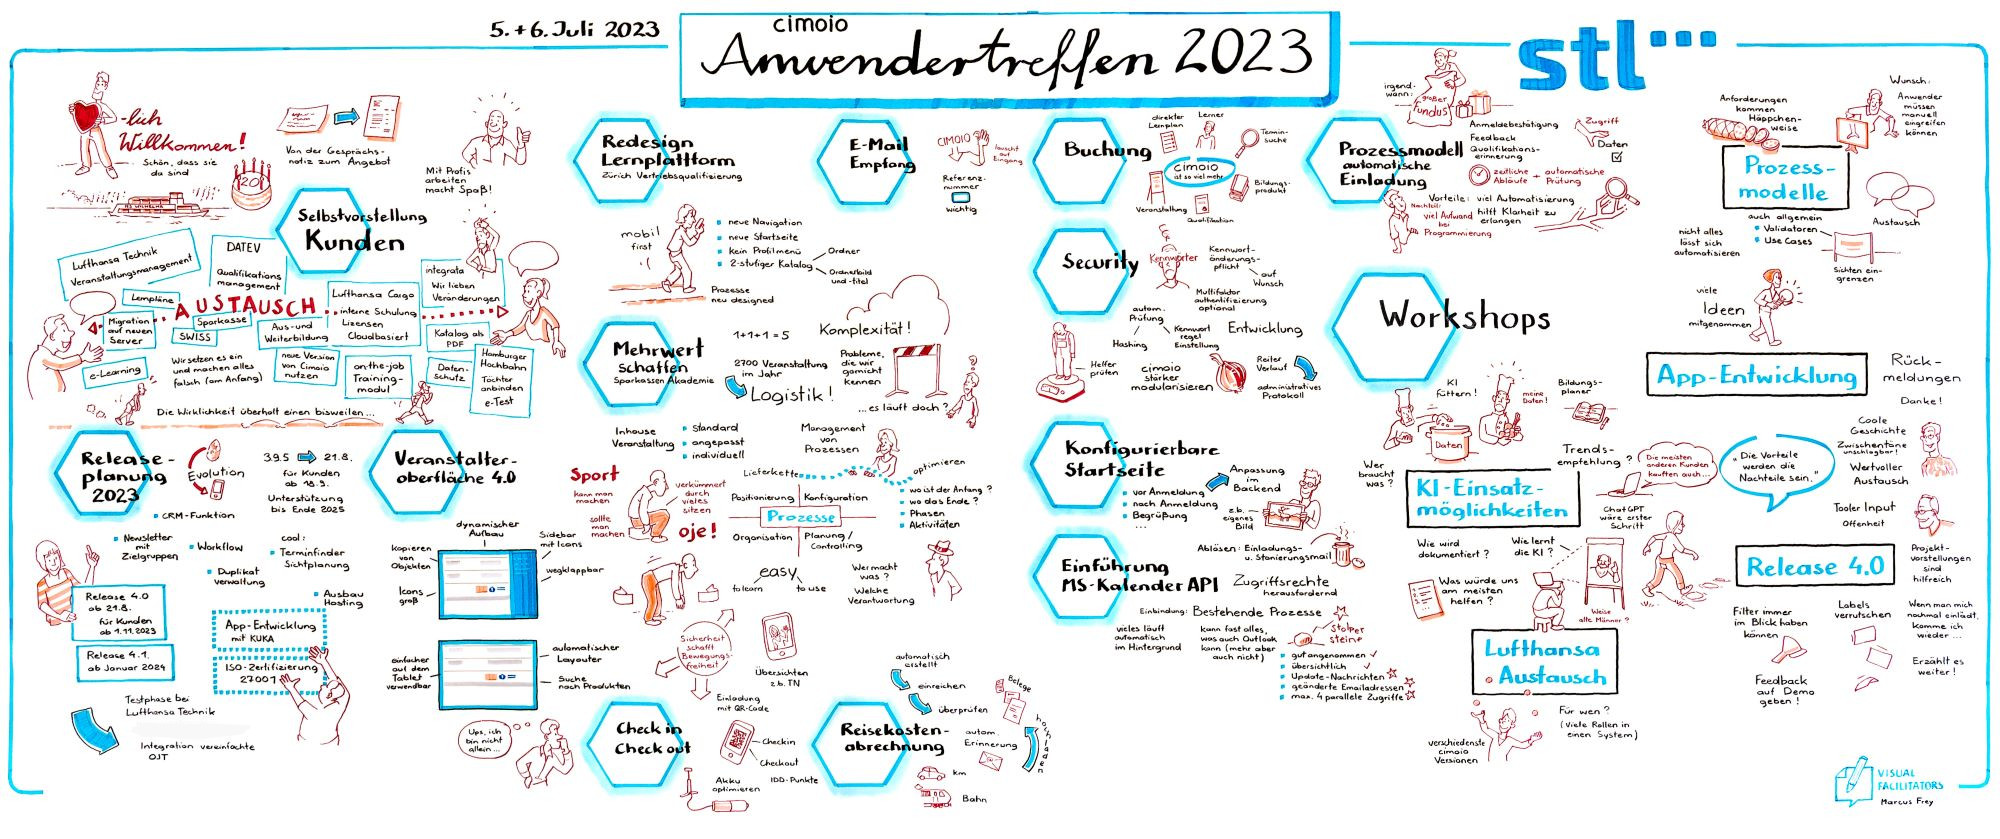 5.+6. Juli 2023
cimoio
Anwendertreffen 2023
stl
-lich
Willkommen!
Schön, dass sie
da sind
20
MS WILHELMA
Von der Gesprächs-
notiz zum Angebot
Mit Profis
arbeiten
macht Spaß!
Selbstvorstellung
Kunden
Lufthansa Technik
Veranstaltungsmanagement
DATEV
Qualifikations
management
Lernpläne
AUSTAUSCH
Lufthansa Cargo
interne Schulung
Lizensen
Cloudbasiert
integrata
Wir lieben
Veränderungen
Migration
auf neuen
Server
Sparkasse
SWISS
Aus- und
Weiterbildung
Katalog als
PDF
e-Learning
Wir setzen es ein
und machen alles
falsch (am Anfang)
neue Version
von Cimoio
nutzen
on-the-job
Training-
modul
Daten-
schutz
Hamburger
Hochbahn
Töchter
anbinden
e-Test
Die Wirklichkeit überholt einen bisweilen...
Release-
planung
2023
Evolution
3.9.5
21.8.
für Kunden
ab 18.9.
Unterstützung
bis Ende 2025
CRM-Funktion
Newsletter
mit
Zielgruppen
Workflow
Duplikat
verwaltung
cool:
Terminfinder
Sichtplanung
Ausbau
Hosting
Release 4.0
ab 21.8.
für Kunden
ab 1.11.2023
Release 4.1.
ab Januar 2024
App-Entwicklung
mit KUKA
ISO-Zertifizierung
27001
Testphase bei
Lufthansa Technik
Integration vereinfachte
OJT
Veranstalter-
oberfläche 4.0
dynamischer
Aufbau
kopieren
von
Objekten
Icons
groß
Sidebar
mit Icons
wegklappbar
einfacher
auf dem
Tablet
verwendbar
automatischer
Layouter
Suche
nach Produkten
Ups, ich
bin nicht
allein...
Redesign
Lernplattform
Zürich Vertriebsqualifizierung
mobil
first
neue Navigation
neue Startseite
kein Profilmenü
2-stufiger Katalog
Ordner
Ordnerbild
und -titel
Prozesse
neu designed
Mehrwert
schaffen
Sparkassen Akademie
1+1+1=5
2700 Veranstaltung
im Jahr
Logistik!
Komplexität!
Probleme,
die wir
garnicht
kennen
...es läuft doch?
Inhouse
Veranstaltung
Standard
angepasst
individuell
Management
von
Prozessen
Lieferkette
optimieren
wo ist der Anfang?
wo das Ende?
Phasen
Aktivitäten
Sport
kann man
machen
sollte
man
machen
verkümmert
durch
vieles
sitzen
oje!
Positionierung
Konfiguration
Prozesse
Organisation
Planung/
Controlling
easy
to learn
to use
Wer macht
was?
Welche
Verantwortung
Sicherheit
schafft
Bewegungs-
freiheit
Übersichten
z.b. TN
Einladung
mit QR-Code
Check in
Check out
Checkin
Checkout
Akku
optimieren
IDD-Punkte
Reisekosten-
abrechnung
automatisch
erstellt
einreichen
überprüfen
Belege
hochladen
autom.
Erinnerung
km
Bahn
E-Mail
Empfang
CIMOIO
lauscht
auf
Eingang
Referenz-
nummer
wichtig
Buchung
direkter
Lernplan
Lerner
Termin-
suche
cimoio
ist so viel mehr
Bildungs-
produkt
Veranstaltung
Qualifikation
Security
Kennwörter
Kennwort-
änderungs-
pflicht
auf
Wunsch
Multifaktor
authentifizierung
optional
autom.
Prüfung
Hashing
Kennwort
regel
Einstellung
Entwicklung
Helfer
prüfen
cimoio
stärker
modularisieren
Reiter
Verlauf
administratives
Protokoll
Konfigurierbare
Startseite
vor Anmeldung
nach Anmeldung
Begrüßung
...
Anpassung
im
Backend
z.b.
eigenes
Bild
Einführung
MS-Kalender API
Ablösen: Einladungs-
u. Stonierungsmail
Zugriffsrechte
herausfordernd
Einbindung: Bestehende Prozesse
vieles läuft
automatisch
im Hintergrund
kann fast alles,
was auch Outlook
kann (mehr aber
auch nicht)
Stolper
steine
gut angenommen
übersichtlich
Update-Nachrichten
geänderte Emailadressen
max. 4 parallele Zugriffe
Prozessmodell
automatische
Einladung
irgend-
wann:
großer
Fundus
Anmeldebestätigung
Feedback
Qualifikations-
erinnerung
Zugriff
Daten
zeitliche
Abläufe
+ automatische
Prüfung
Vorteile: viel Automatisierung
hilft Klarheit zu
erlangen
Nachteile:
viel Aufwand
bei
Programmierung
Workshops
Anforderungen
kommen
Häppchen-
weise
Wunsch:
Anwender
müssen
manuell
eingreifen
können
Prozess-
modelle
Austausch
auch allgemein
Validatoren
Use Cases
nicht alles
lässt sich
automatisieren
Sichten ein-
grenzen
viele
Ideen
mitgenommen
App-Entwicklung
Rück-
meldungen
Danke!
KI
füttern!
Daten
meine
Daten!
Bildungs-
planer
Wer
braucht
was?
Trends-
empfehlung?
Die meisten
anderen Kunden
kauften auch...
KI-Einsatz-
möglichkeiten
ChatGPT
wäre erster
Schritt
Wie wird
dokumentiert?
Wie lernt
die KI?
Was würde uns
am meisten
helfen?
Weise
alte Männer?
Lufthansa
Austausch
verschiedenste
cimoio
Versionen
Für wen?
(Viele Rollen in
einen System)
"Die Vorteile
werden die
Nachteile sein."
Coole
Geschichte
Zwischentöne
unschlagbar!
Wertvoller
Austausch
Tooler Input
Offenheit
Release 4.0
Projekt-
vorstellungen
sind
hilfreich
Filter immer
im Blick haben
können
Labels
verrutschen
Wenn man mich
nochmal einlädt,
komme ich
wieder...
Feedback
auf Demo
geben!
Erzählt es
weiter!
VISUAL
FACILITATORS
Marcus Frey